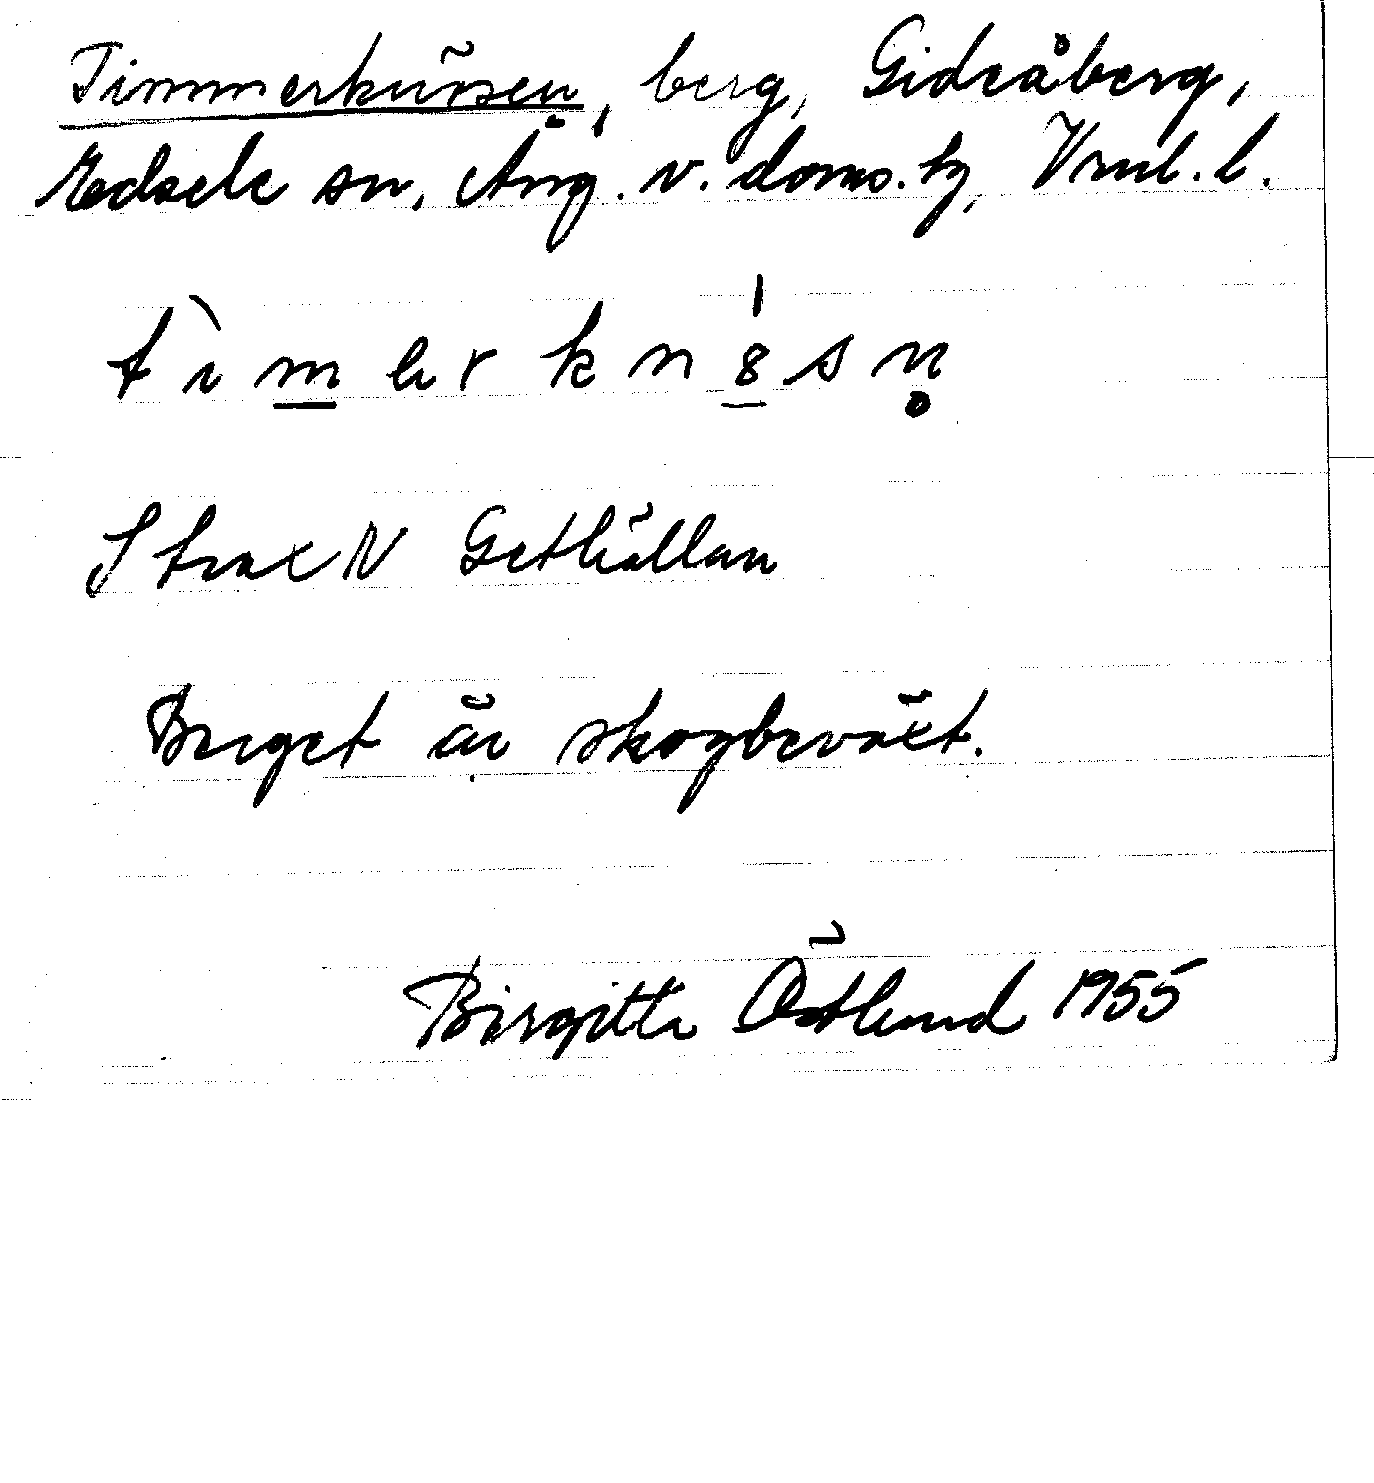 Timmerknösen, berg, Gideåberg,
Edsele sn, Ång. v. doms. tg, Vrnl. l.
Strax N Getkällan
Berget är skogbeväxt.
Birgitta Östlund 1955